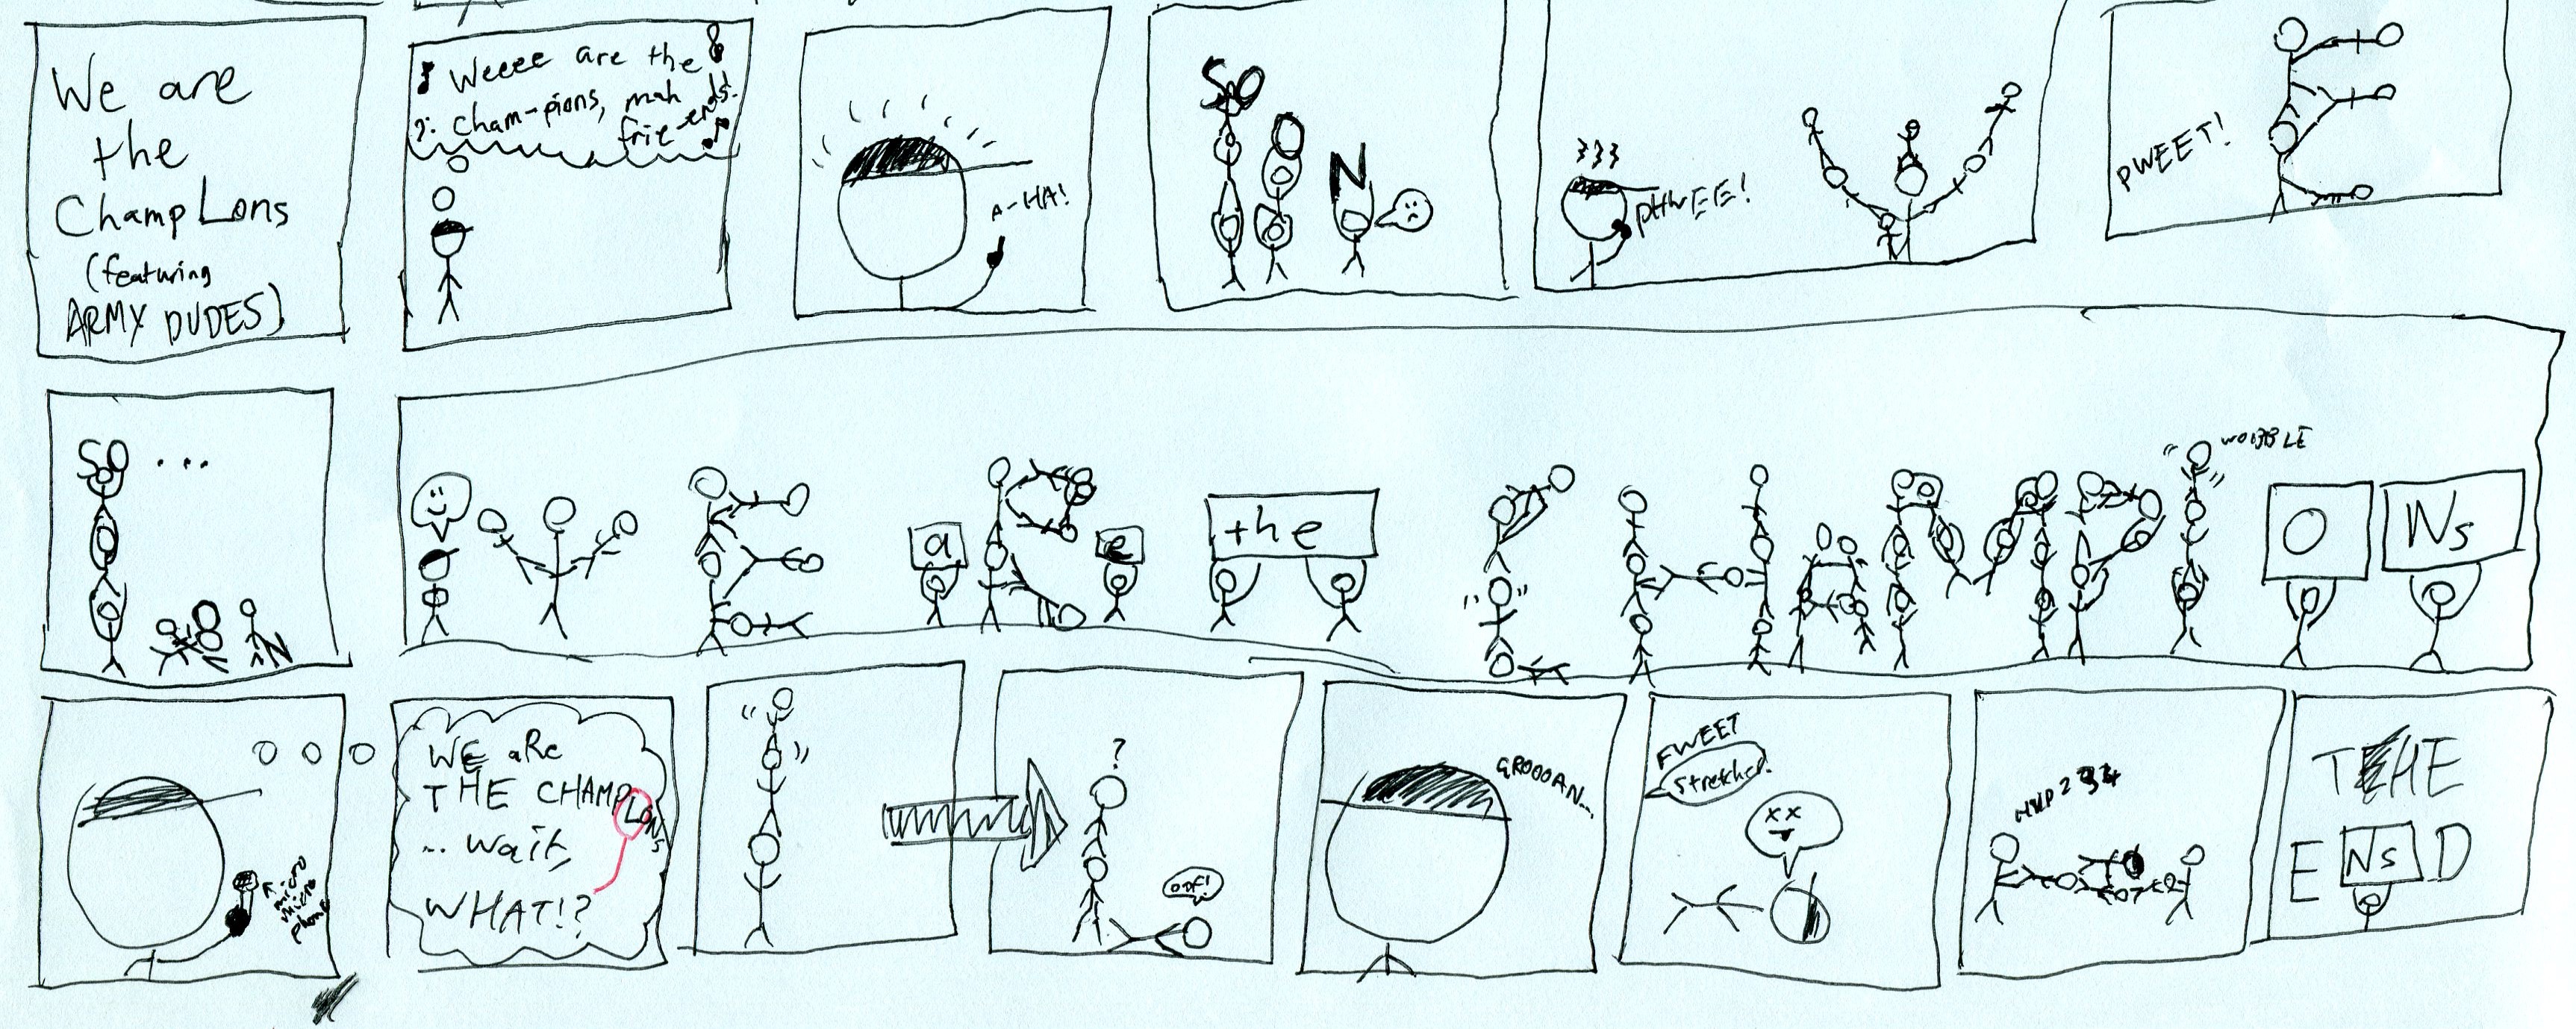 We are
the
ChampLons
(featuring
ARMY DUDES)
Weeee are the
cham-pions, mah
frie-ends!
A-HA!
SO
O
N
PHWEE!
PWEET!
SO ...
a
e
the
WOBBLE
O
Ns
micro
micro
phone
WE aRe
THE CHAMPLONs
... wait,
WHAT!?
?
OOF!
GROOOAN...
FWEET
Stretcher!
HUP 2 3 4
THE
E Ns D